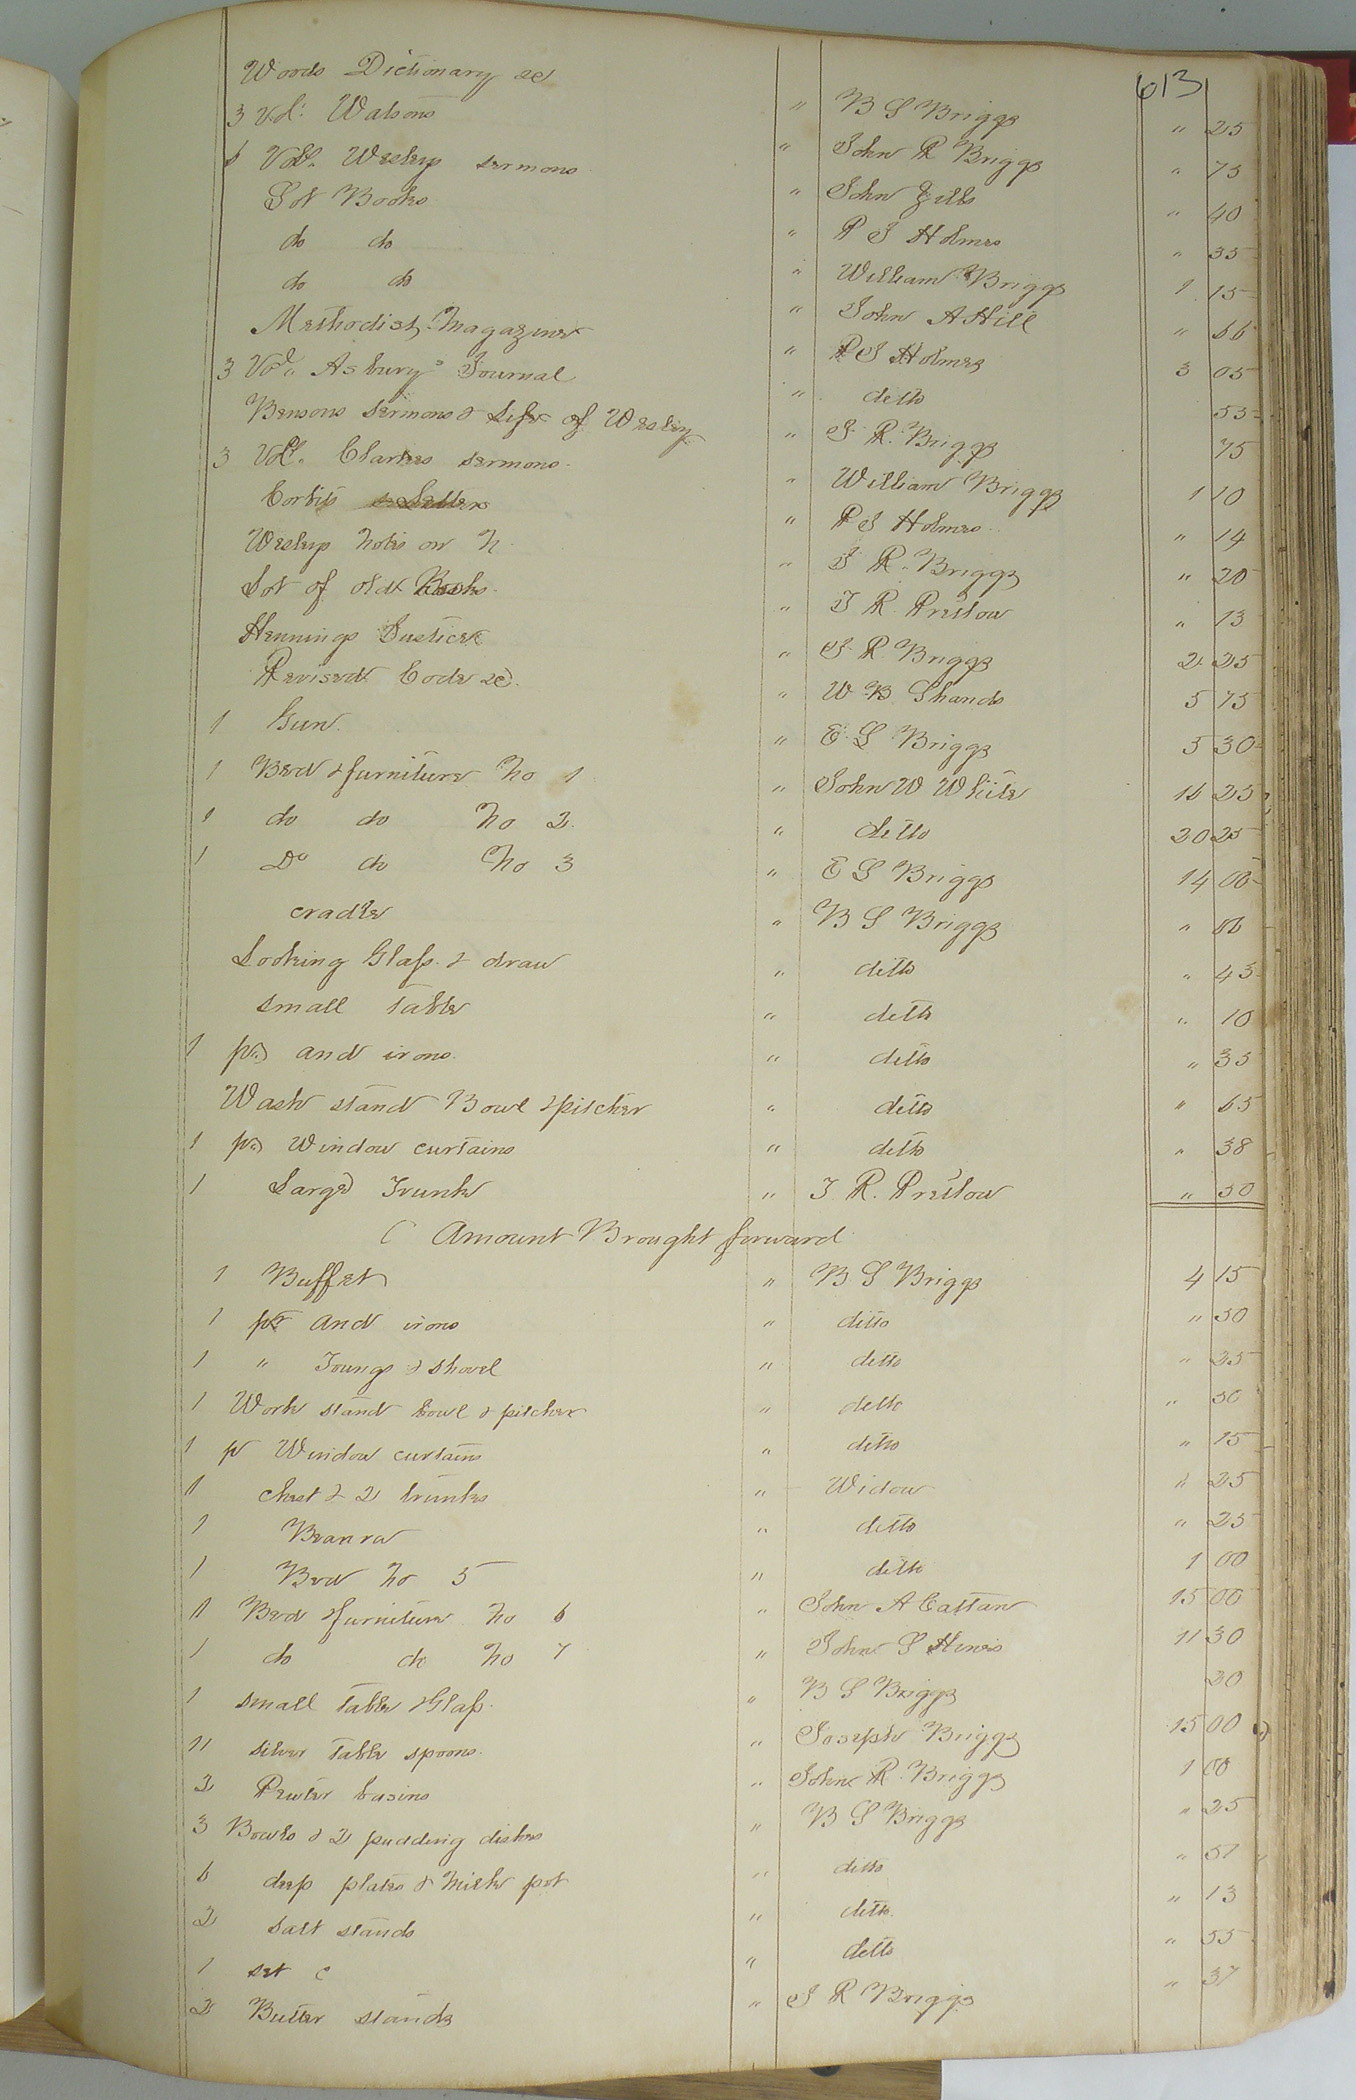 613
Woods Dictionary &c " B S Briggs " 25
3 Vol: Watsons " John R Briggs " 75
6 Vol. Wesleys sermons " John Gills " 40
Lot Books " P S Holmes " 35
do do " William Briggs 1 15
do do " John A Hill " 66
Methodist Magazines " P S Holmes 3 05
3 Vol. Asbury's Journal " ditto 55
Bensons Sermons & Life of Wesley " S. R. Briggs 75
3 Vol. Clarkes sermons " William Briggs 1 10
" P S Holmes " 14
Wesleys Notes on N " S R. Briggs " 20
Lot of old Books " T R Pretlow " 13
Hennings Justice " S. R. Briggs 2 25
Revised Code &c. " W B Shands 5 75
1 Gun " E. S. Briggs 5 30
1 Bed & furniture No 1 " John W White 16 25
1 do do No 2 " ditto 20 25
1 Do do No 3 " E S Briggs 14 00
cradle " B S Briggs " 06
Looking Glass & draw " ditto " 43
small table " ditto " 10
1 pr and irons " ditto " 35
Wash stand Bowl & pitcher " ditto " 65
1 pr Window curtains " ditto " 38
1 Large Trunk " T R. Pretlow " 50
( Amount Brought forward
1 Buffet " B S Briggs 4 15
1 pr and irons " ditto " 50
1 " Toungs & shovel " ditto " 25
1 Work stand bowl & pitcher " ditto " 50
1 pr Window curtains " ditto " 15
1 chest & 2 trunks " Widow " 25
1 " ditto " 25
1 Bed No 5 " ditto 1 00
1 Bed & furniture No 6 " John A 15 00
1 do do No 7 " John S 11 30
1 small table & Glass " B S Briggs 20
11 silver table spoons " Joseph Briggs 15 00
2 Pewter basins " John R. Briggs 1 00
3 Bowls & 2 pudding dishes " B S Briggs " 25
6 deep plates & milk pot " ditto " 57
2 salt stands " ditto " 13
1 set c " ditto " 55
2 Butter stands " S R Briggs " 37